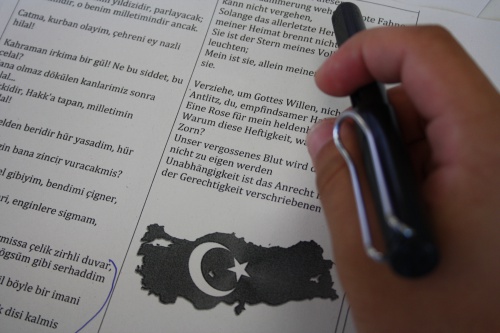 yildizidir, parlayacak;
o benim milletimindir ancak.
Catma, kurban olayim, çehreni ey nazli
hilal!
Kahraman irkima bir gül! Ne bu siddet, bu
celal?
olmaz dökülen kanlarimiz sonra
Hakk'a tapan, milletimin
beridir hür yasadim, hür
bana zincir vuracakmis?
gibiyim, bendimi çigner,
enginlere sigmam,
çelik zirhli duvar,
gibi serhaddim
böyle bir imani
disi kalmis
kann nicht vergehen,
Solange das allerletzte
meiner Heimat brennt
Sie ist der Stern meines
leuchten;
Mein ist sie, allein meines
sie.
Verziehe, um Gottes Willen,
Antlitz, du, empfindsamer
Eine Rose für mein
Warum diese Heftigkeit,
Zorn?
Unser vergossenes Blut wird
nicht zu eigen werden
Unabhängigkeit ist das Anrecht
der Gerechtigkeit verschriebenen